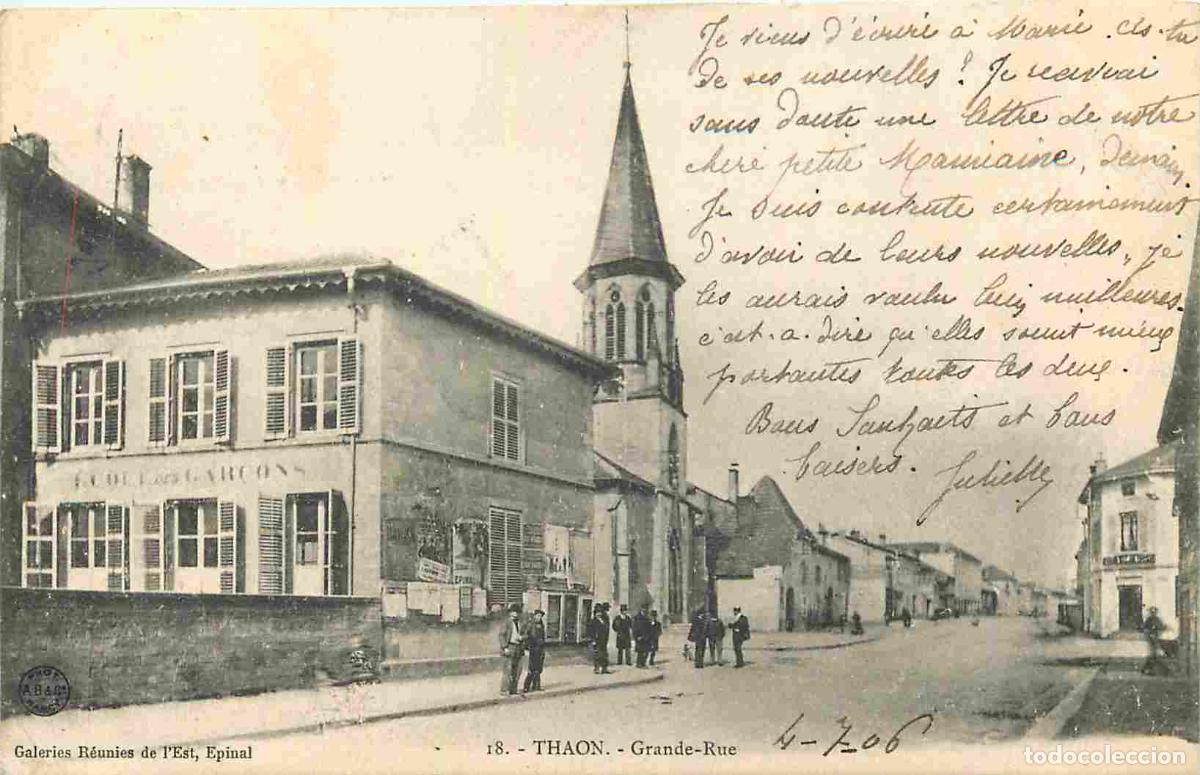 Je viens d'écrire à Marie. As-tu
de ses nouvelles? Je recevrai
sans doute une lettre de notre
chère petite Mamiaine, demain.
Je suis contente certainement
d'avoir de leurs nouvelles, je
les aurais voulu bien meilleures.
c'est-a-dire qu'elles soient mieux
portantes toutes les deux.
Bons Souhaits et bons
baisers. Juliette
ECOLE DES GARCONS
EPINAL
PHOT
A.B.&C.
NANCY
Galeries Réunies de l'Est, Epinal
18. - THAON. - Grande-Rue
4-7-06
todocoleccion